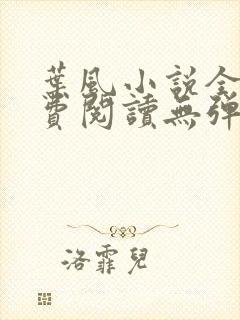 葉風小說全
費閱讀無彈
洛霏兒